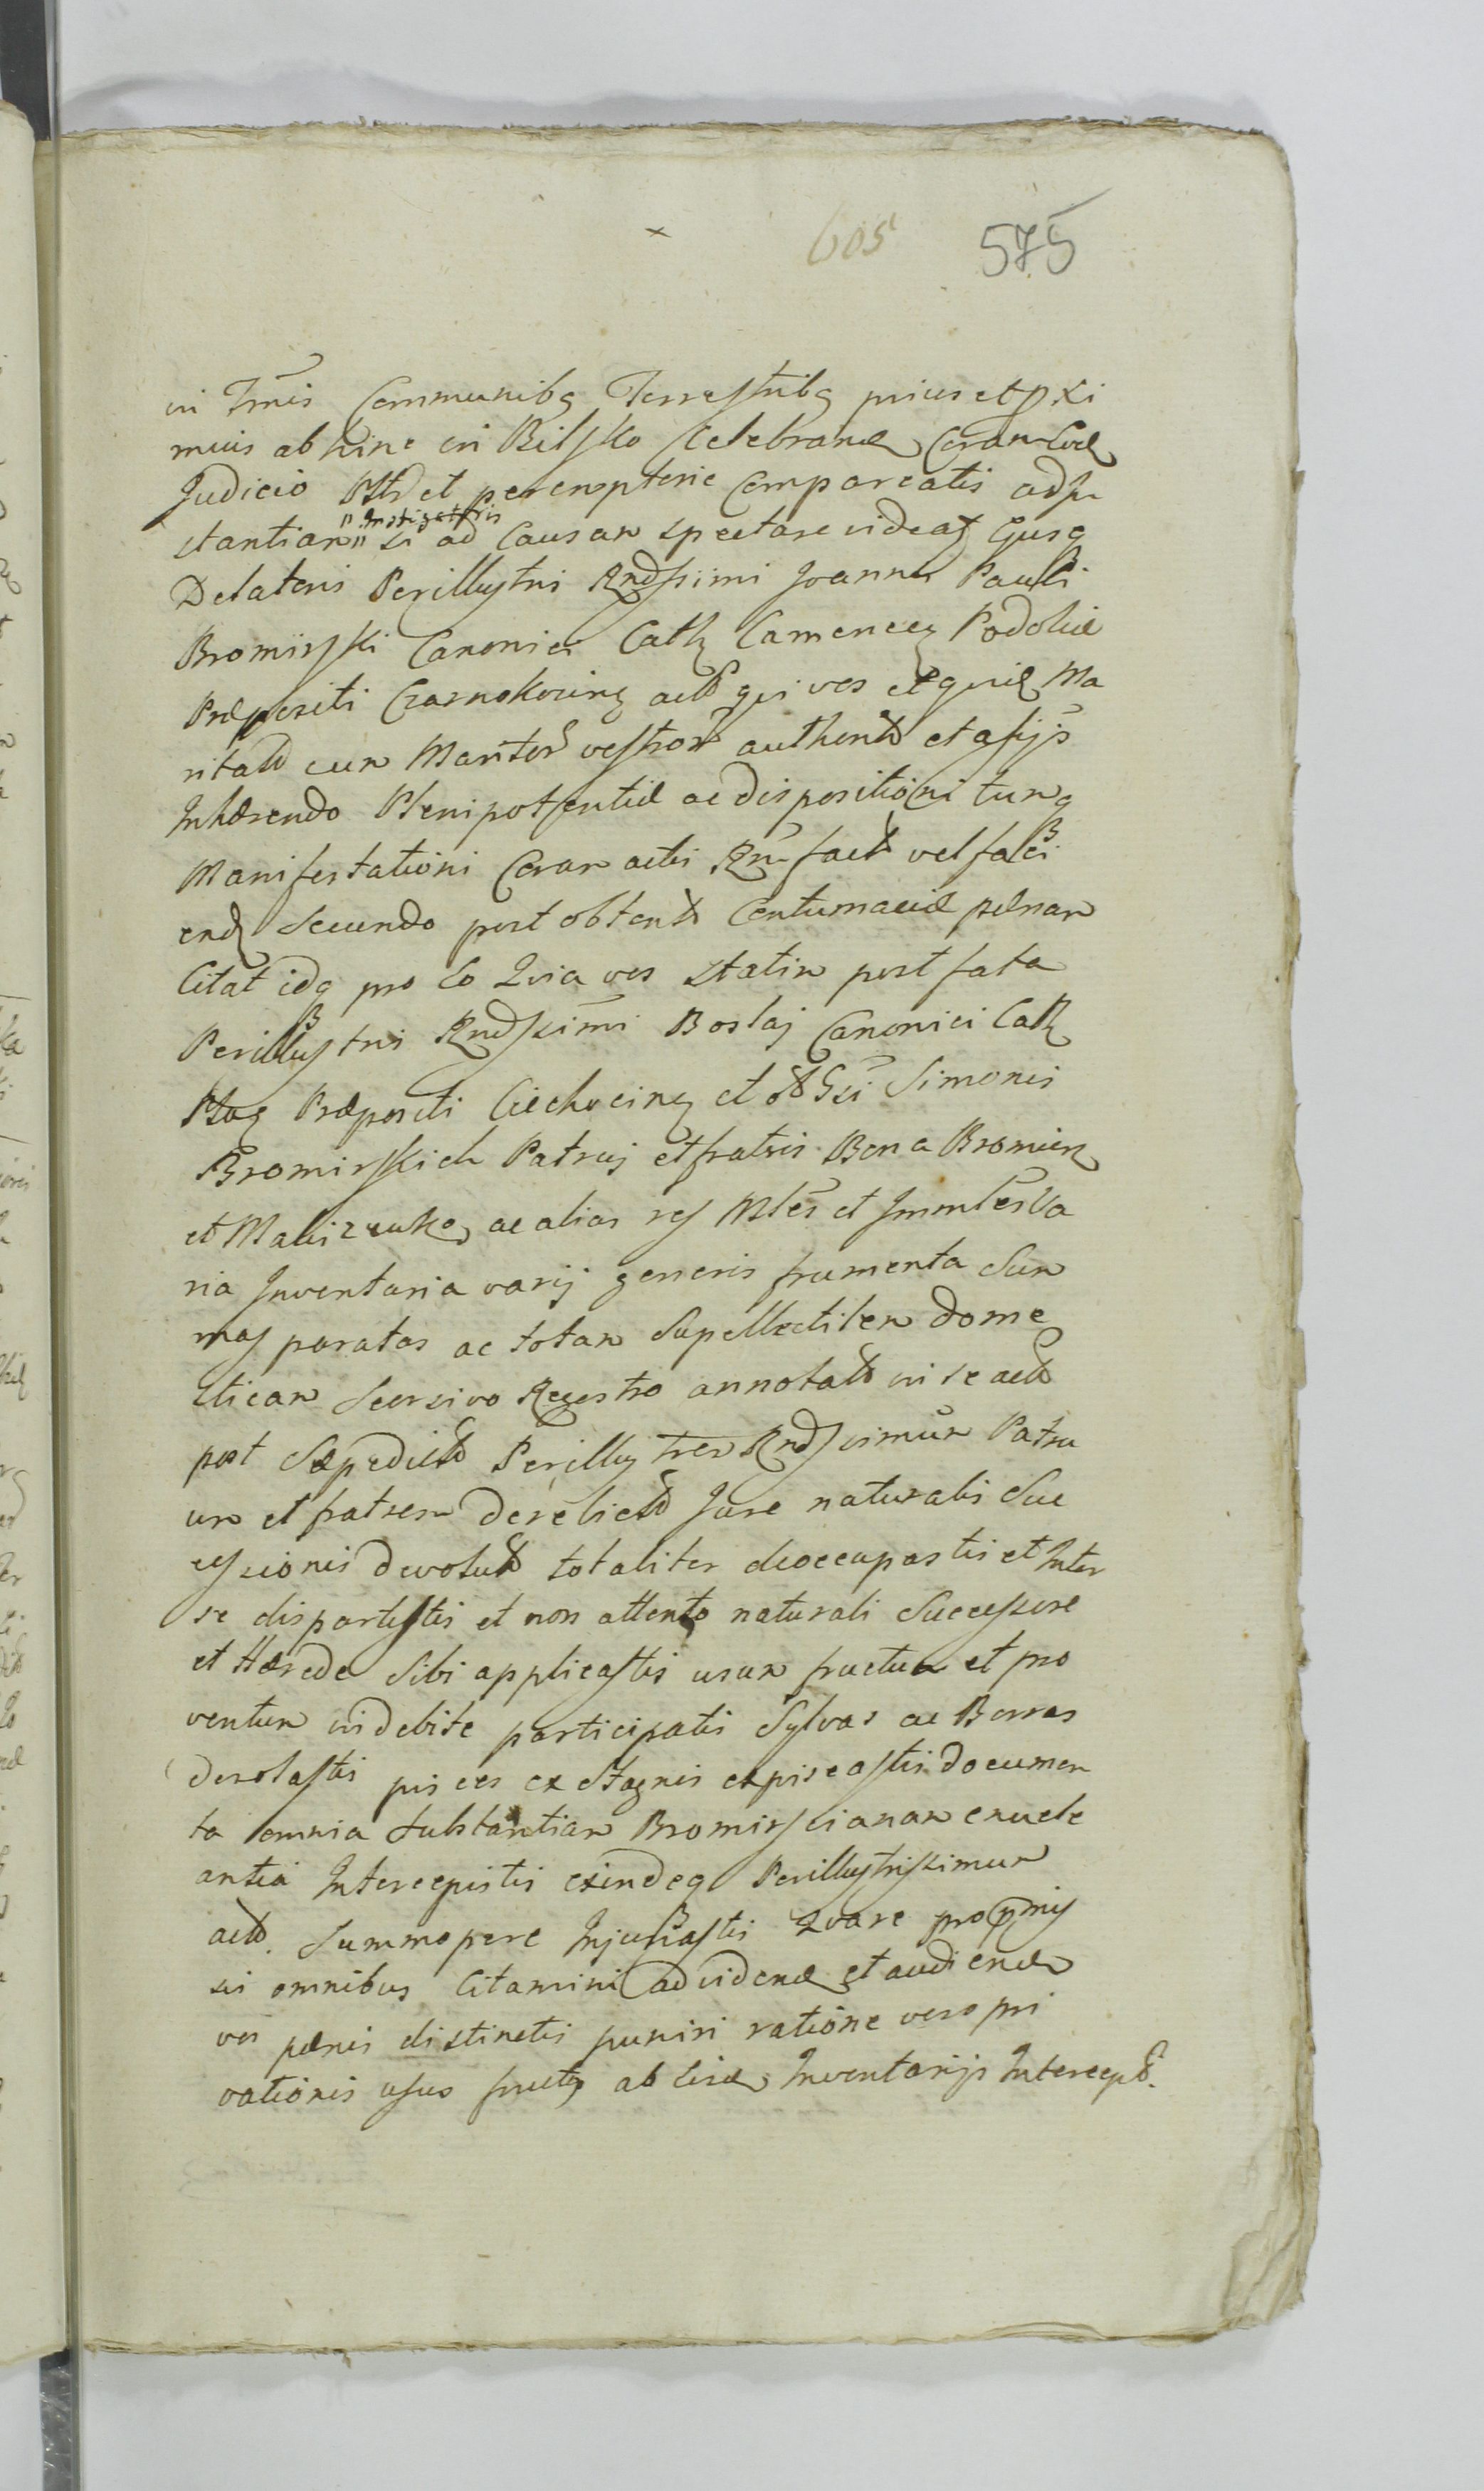 605 575
in Trmis Communibq Terrestribq prius et pxi
mius ab hinc in Bilsko Celebrand Coran Eod
Judicio Ptr et peremptorie Compareatis ad In
stantian "Instigatoris" si ad Causan spectare videat Ejusq
Delatoris Perillustris Rndssimi Joannis Pauli
Bromirski Canonici Cath Camenecz Podoliæ
Præpositi Czarnokozinz act qui vos et quil Ma
ritat cum Maritor vestror authent et assis
Inhærendo Plenipotentiæ ac dispositioni tunq
Manifestationi Coran actis Rn fact vel faci
end Secundo post obtent Contumaciæ pænan
Citat idq pro Eo Qvia vos statin post fata
Perillustris Rndssimi Boslaj Canonici Cath
Præpositi Ciechocinz et Gsi Simonis
Bromirskich Patruj et fratris Bona Bromierz
et ac alias res Mles et Immles Va
ria Inventaria varij generis frumenta Sun
mas paratas ac totan Supellectilen dome
stican Seorsivo Regestro annotat in se act
post Sæpedict Perillustren Rndssimun Patru
un et fratrem derelict Jure naturalis Suc
cessionis devolut totaliter deoccupastis et Inter
se dispartistis et non attento naturali Successore
et Hærede Sibi applicastis usun fructun et pro
ventun indebite participatis Sylvas ac Borras
desolastis pisces ex Stagnis expiscastis documen
ta omnia Substantian Bromirscianan enucle
antia Intercepistis exindeq Perillustrissimun
act. Summopere Injuriastis Qvare pro pmis
sis omnibus Citamini ad vidend et audiend
vos pænis distinctis puniri ratione vero pri
vationis usus fructus ab Eisd Inventarijs Intercept.